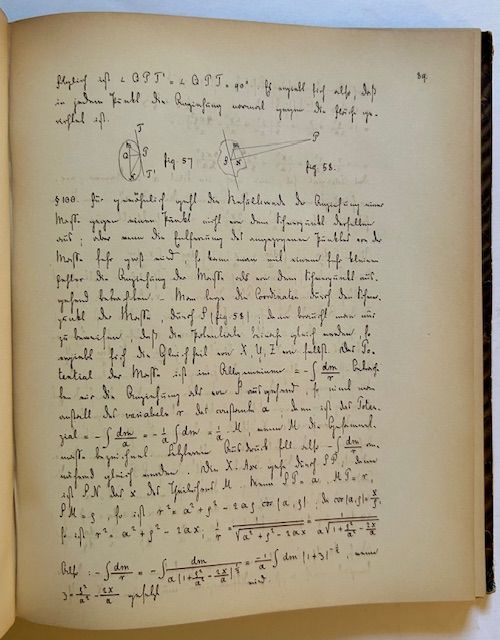 89.
folglich ist ∠ QPT' = ∠ QPT = 90°. Es ergiebt sich also, daß
in jedem Punkt die Anziehung normal gegen die Fläche ge-
richtet ist.
T
Q P fig. 57
K T'
P
S x fig. 58.
§ 100. Für gewöhnlich geht die Resultirende der Anziehung einer
Masse gegen einen Punkt nicht von dem Schwerpunkt derselben
aus; aber wenn die Entfernung des angezogenen Punktes von der
Masse sehr groß wird, so kann man mit einem sehr kleinen
Fehler die Anziehung der Masse als von dem Schwerpunkt aus-
gehend betrachten. Man lege die Coordinaten durch den Schwer-
punkt der Masse, durch S (fig. 58); dann braucht man nur
zu beweisen, daß die Potentiale beinahe gleich werden, so
ergiebt sich die Gleichheit von X, Y, Z von selbst. Das Po-
tential der Masse ist im Allgemeinen = -∫ dm/r. Betrach-
ten wir die Anziehung als von S ausgehend, so nimmt man
anstatt des variabeln r das constante a, dann ist das Poten-
zial = -∫ dm/a = -1/a ∫ dm = 1/a M, wenn M die Gesammt-
masse bezeichnet. Letzterer Ausdruck soll also -∫ dm/r an-
nähernd gleich werden. Die X. Axe gehe durch SP, dann
ist SN das x des Theilchens M. Wenn SP = a, MP = r,
SM = ρ, so ist r² = a² + ρ² - 2aρ cos(a,ρ); da cos(a,ρ) = x/ρ,
so ist r² = a² + ρ² - 2ax; 1/r = 1/√(a² + ρ² - 2ax) = 1/(a√(1 + ρ²/a² - 2x/a))
Also: -∫ dm/r = -∫ dm/(a(1 + ρ²/a² - 2x/a)^½) = -1/a ∫ dm (1+z)^-½, wenn
z = ρ²/a² - 2x/a gesetzt wird